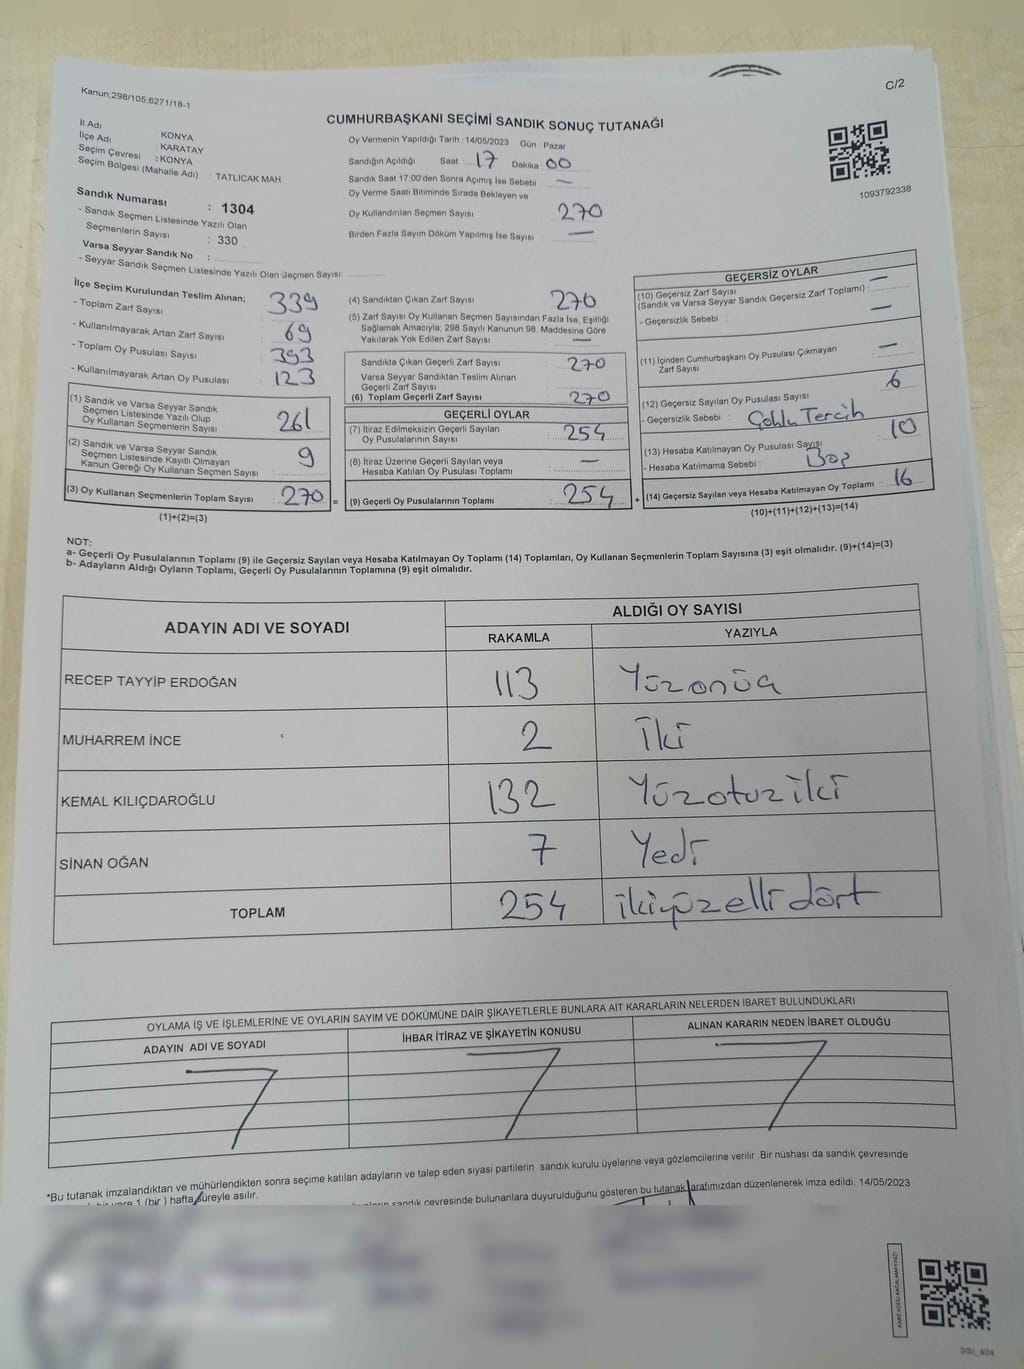 Kanun;298/105;6271/18-1
C/2
CUMHURBAŞKANI SEÇİMİ SANDIK SONUÇ TUTANAĞI
İl Adı : KONYA
İlçe Adı : KARATAY
Seçim Çevresi : KONYA
Seçim Bölgesi (Mahalle Adı) : TATLICAK MAH.
Sandık Numarası : 1304
- Sandık Seçmen Listesinde Yazılı Olan
Seçmenlerin Sayısı : 330
Varsa Seyyar Sandık No :
- Seyyar Sandık Seçmen Listesinde Yazılı Olan Seçmen Sayısı:
Oy Vermenin Yapıldığı Tarih : 14/05/2023 Gün : Pazar
Sandığın Açıldığı Saat : 17 Dakika : 00
Sandık Saat 17:00'den Sonra Açımış İse Sebebi : —
Oy Verme Saati Bitiminde Sırada Bekleyen ve
Oy Kullandırılan Seçmen Sayısı : 270
Birden Fazla Sayım Döküm Yapılmış İse Sayısı : —
1093792338
İlçe Seçim Kurulundan Teslim Alınan;
- Toplam Zarf Sayısı : 339
- Kullanılmayarak Artan Zarf Sayısı : 69
- Toplam Oy Pusulası Sayısı : 393
- Kullanılmayarak Artan Oy Pusulası : 123
(1) Sandık ve Varsa Seyyar Sandık
Seçmen Listesinde Yazılı Olup
Oy Kullanan Seçmenlerin Sayısı : 261
(2) Sandık ve Varsa Seyyar Sandık
Seçmen Listesinde Kayıtlı Olmayan
Kanun Gereği Oy Kullanan Seçmen Sayısı : 9
(3) Oy Kullanan Seçmenlerin Toplam Sayısı : 270 =
(1)+(2)=(3)
(4) Sandıktan Çıkan Zarf Sayısı : 270
(5) Zarf Sayısı Oy Kullanan Seçmen Sayısından Fazla İse, Eşitliği
Sağlamak Amacıyla; 298 Sayılı Kanunun 98. Maddesine Göre
Yakılarak Yok Edilen Zarf Sayısı : —
Sandıkta Çıkan Geçerli Zarf Sayısı : 270
Varsa Seyyar Sandıktan Teslim Alınan
Geçerli Zarf Sayısı :
(6) Toplam Geçerli Zarf Sayısı : 270
GEÇERLİ OYLAR
(7) İtiraz Edilmeksizin Geçerli Sayılan
Oy Pusulalarının Sayısı : 254
(8) İtiraz Üzerine Geçerli Sayılan veya
Hesaba Katılan Oy Pusulası Toplamı : —
(9) Geçerli Oy Pusulalarının Toplamı : 254 +
GEÇERSİZ OYLAR
(10) Geçersiz Zarf Sayısı
(Sandık ve Varsa Seyyar Sandık Geçersiz Zarf Toplamı) : —
- Geçersizlik Sebebi : —
(11) İçinden Cumhurbaşkanı Oy Pusulası Çıkmayan
Zarf Sayısı : —
(12) Geçersiz Sayılan Oy Pusulası Sayısı 6
- Geçersizlik Sebebi : Çoklu Tercih
(13) Hesaba Katılmayan Oy Pusulası Sayısı 10
- Hesaba Katılmama Sebebi : Boş
(14) Geçersiz Sayılan veya Hesaba Katılmayan Oy Toplamı : 16
(10)+(11)+(12)+(13)=(14)
NOT:
a- Geçerli Oy Pusulalarının Toplamı (9) ile Geçersiz Sayılan veya Hesaba Katılmayan Oy Toplamı (14) Toplamları, Oy Kullanan Seçmenlerin Toplam Sayısına (3) eşit olmalıdır. (9)+(14)=(3)
b- Adayların Aldığı Oyların Toplamı, Geçerli Oy Pusulalarının Toplamına (9) eşit olmalıdır.
ADAYIN ADI VE SOYADI ALDIĞI OY SAYISI
RAKAMLA YAZIYLA
RECEP TAYYİP ERDOĞAN 113 Yüzonüç
MUHARREM İNCE 2 İki
KEMAL KILIÇDAROĞLU 132 Yüzotuziki
SİNAN OĞAN 7 Yedi
TOPLAM 254 ikiyüzellidört
OYLAMA İŞ VE İŞLEMLERİNE VE OYLARIN SAYIM VE DÖKÜMÜNE DAİR ŞİKAYETLERLE BUNLARA AİT KARARLARIN NELERDEN İBARET BULUNDUKLARI
ADAYIN ADI VE SOYADI İHBAR İTİRAZ VE ŞİKAYETİN KONUSU ALINAN KARARIN NEDEN İBARET OLDUĞU
*Bu tutanak imzalandıktan ve mühürlendikten sonra seçime katılan adayların ve talep eden siyasi partilerin sandık kurulu üyelerine veya gözlemcilerine verilir Bir nüshası da sandık çevresinde
bir yere 1 (bir ) hafta süreyle asılır.
sandık çevresinde bulunanlara duyurulduğunu gösteren bu tutanak tarafımızdan düzenlenerek imza edildi. 14/05/2023